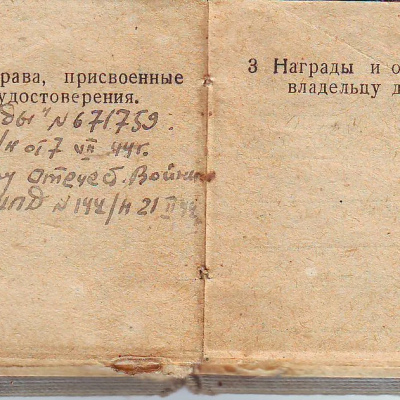 рава, присвоенные
удостоверения.
ды" № 671759.
/н от 7 VII 44г.
Отечеств. Войны
№ 142/н 21 II
3 Награды и о
владельцу д